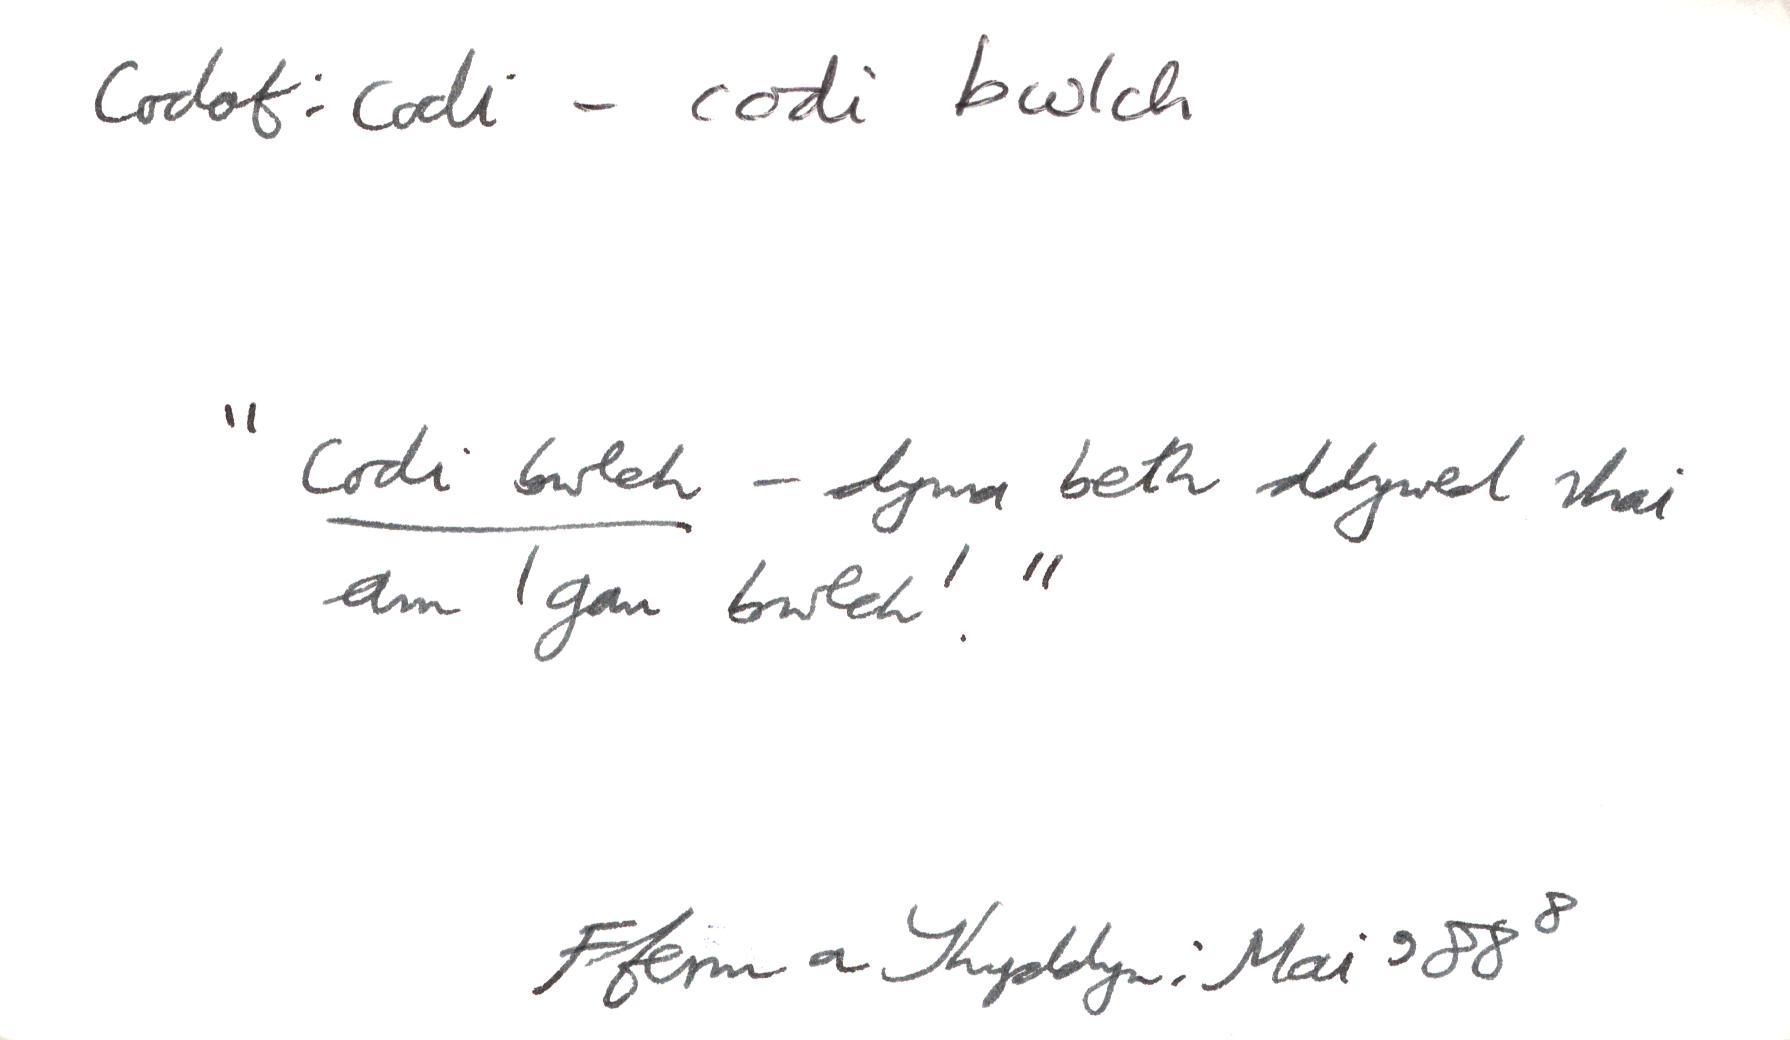 Codof: Codi - codi bwlch
"Codi bwlch - dyma beth ddywed rhai
am 'gau bwlch'!"
Fferm a Thyddyn: Mai '88 8